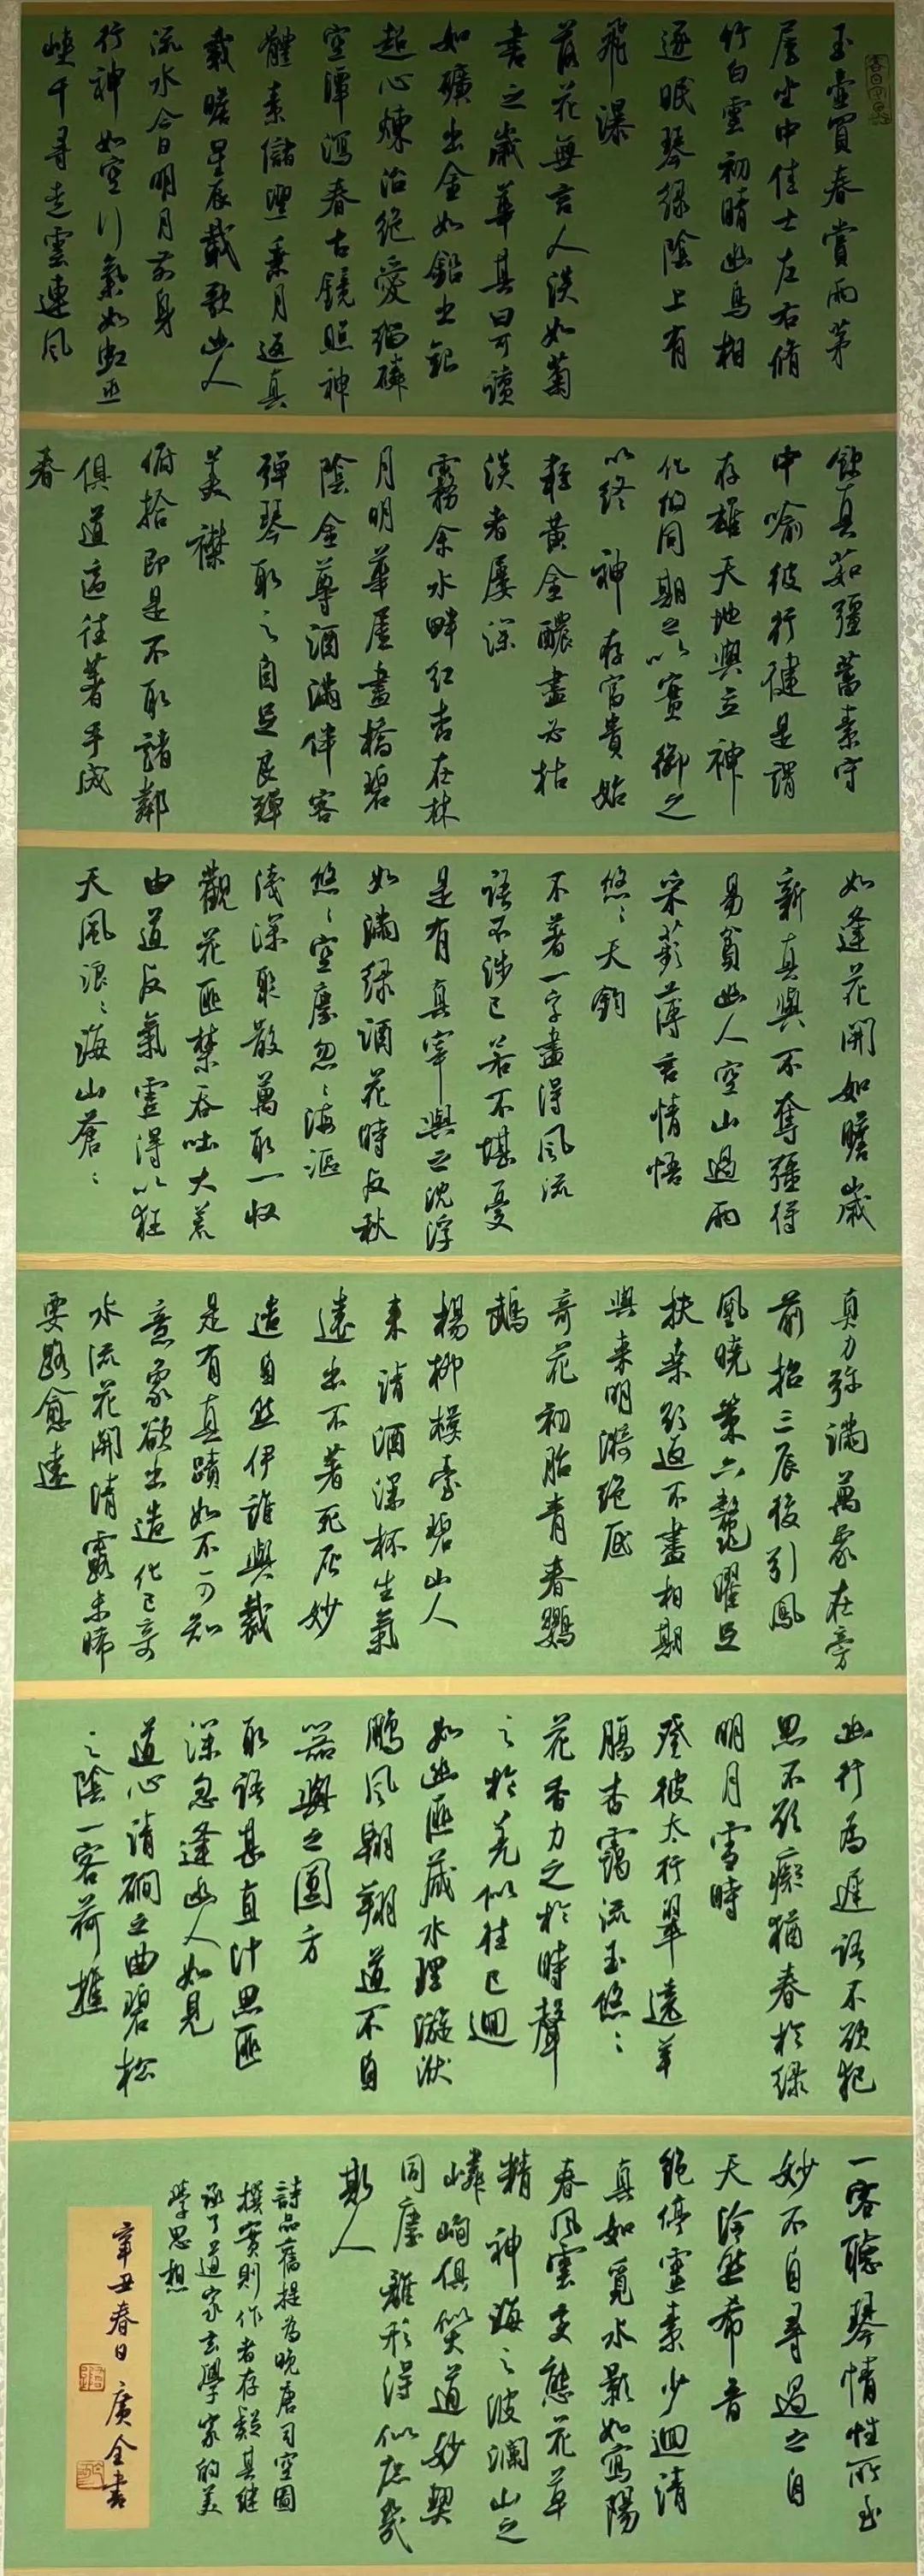 玉壺買春賞雨茅
屋坐中佳士左右脩
竹白雲初晴幽鳥相
逐眠琴綠陰上有
飛瀑
落花無言人淡如菊
書之歲華其曰可讀
如礦出金如鉛出銀
超心煉冶絕愛緇磷
空潭瀉春古鏡照神
體素儲潔乘月返真
載瞻星辰載歌幽人
流水今日明月前身
行神如空行氣如虹巫
峽千尋走雲連風
飲真茹彊蓄素守
中喻彼行健是謂
存雄天地與立神
化攸同期之以實御之
以終 神存富貴始
輕黃金醲盡必枯
淡者屢深
霧余水畔紅杏在林
月明華屋畫橋碧
陰金尊酒滿伴客
彈琴取之自足良殫
美襟
俯拾即是不取諸鄰
俱道適往著手成
春
如逢花開如瞻歲
新真與不奪彊得
易貧幽人空山過雨
采蘋薄言情悟
悠〻天鈞
不著一字盡得風流
語不涉已若不堪憂
是有真宰與之沈浮
如滿綠酒花時反秋
悠〻空塵忽〻海漚
淺深聚散萬取一收
觀花匪禁吞吐大荒
由道反氣處得以狂
天風浪〻海山蒼〻
真力弥滿萬象在旁
前招三辰後引鳳
凰曉策六鰲濯足
扶桑欲返不盡相期
與來明漪絕底
奇花初胎青春鸚
鵡
楊柳樓臺碧山人
來清酒深杯生氣
遠出不著死灰妙
造自然伊誰與裁
是有真蹟如不可知
意象欲出造化已奇
水流花開清露未晞
要路愈遠
幽行為遲語不欲犯
思不欲癡猶春於綠
明月雪時
登彼太行翠遶羊
腸杳靄流玉悠〻
花香力之於時聲
之於羌似往已迴
如幽匪藏水理漩洑
鵬風翱翔道不自
器與之圓方
取語甚直計思匪
深忽逢幽人如見
道心清磵之曲碧松
之陰一客荷樵
一客聽琴情性所至
妙不自尋遇之自
天泠然希音
絕佇靈素少迴清
真如覓水影如寫陽
春風雲變態花草
精神海之波瀾山之
嶙峋俱似大道妙契
同塵離形得似庶幾
斯人
詩品舊提為晚唐司空圖
撰實則作者存疑其継
承了道家玄學家的美
學思想
辛丑春日 廣全書